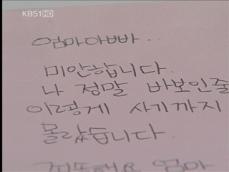 KBS1 HD
엄마아빠..
미안합니다.
나 정말 바보인줄
이렇게 사기까지
몰랐습니다.
엄마